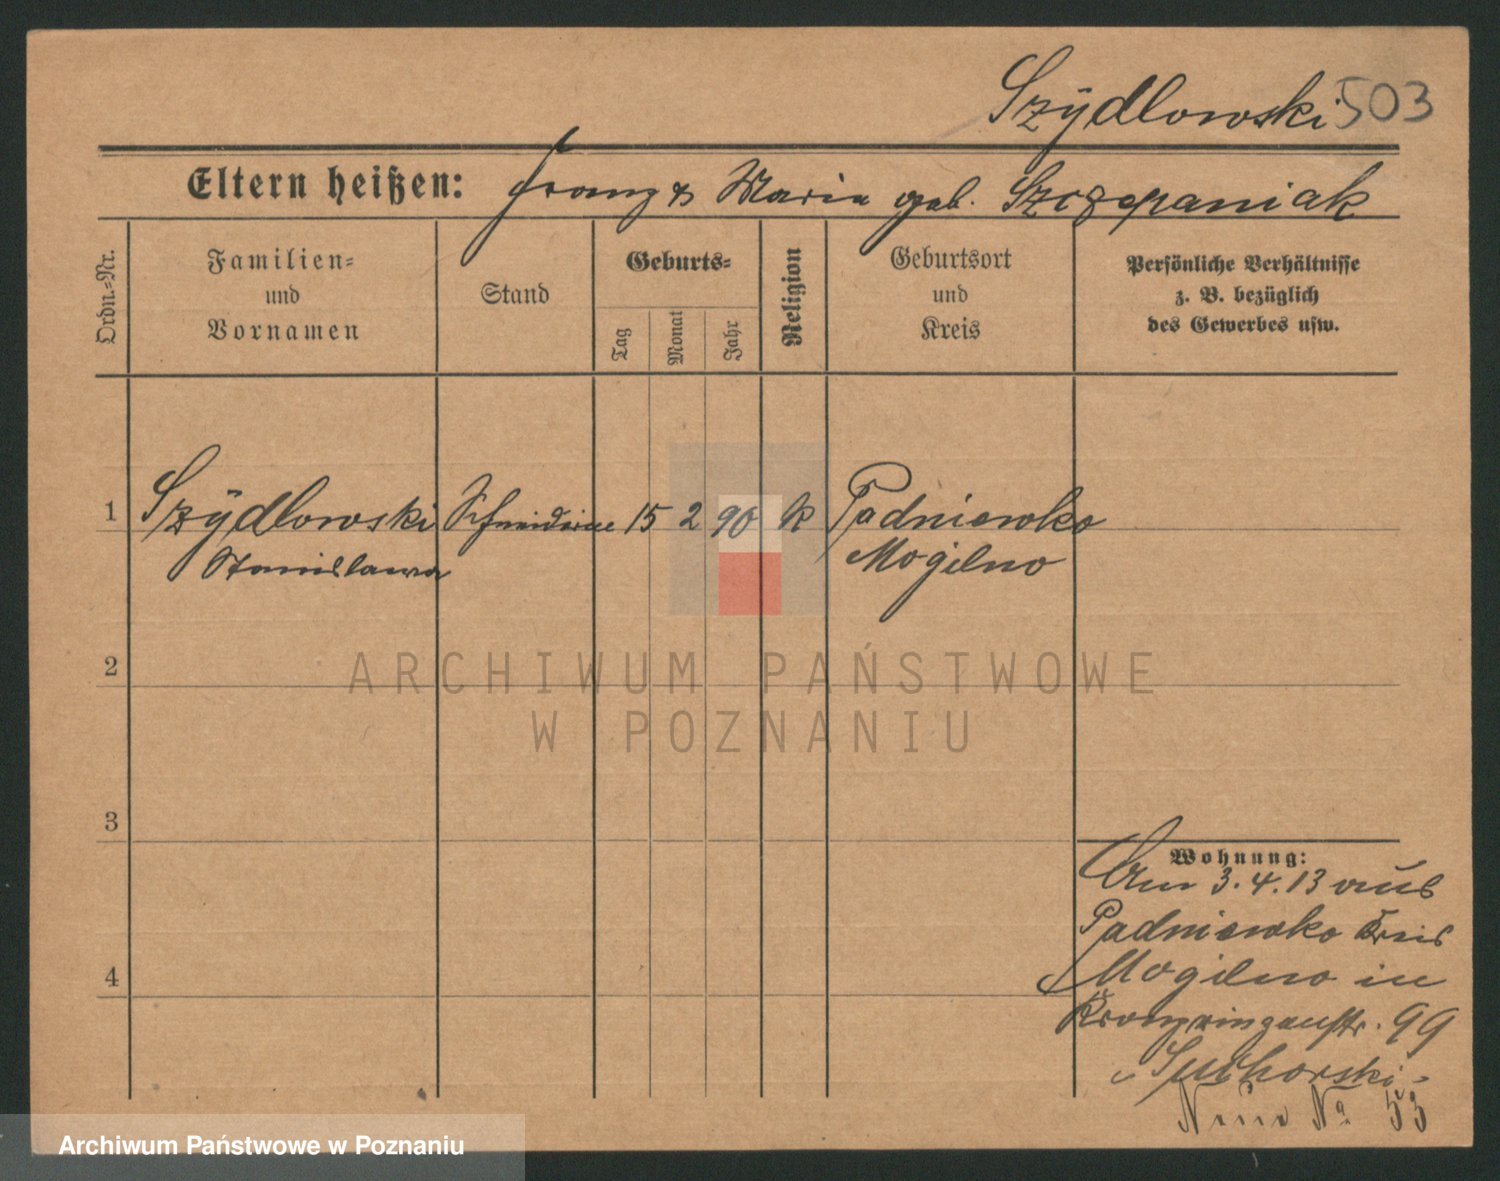 Szÿdlowski 503
Eltern heißen: Franz & Maria geb. Szczepaniak
Ordn.-Nr.
Familien-
und
Vornamen
Stand
Geburts-
Tag
Monat
Jahr
Religion
Geburtsort
und
Kreis
Persönliche Verhältnisse
z. B. bezüglich
des Gewerbes usw.
1 Szÿdlowski Schneiderin 15 2 90 k Padniewko
Stanislawa Mogilno
ARCHIWUM PAŃSTWOWE
W POZNANIU
2
3
4
Wohnung:
Am 3.4.13 aus
Padniewko Kreis
Mogilno in
Kronprinzenstr. 99
Suchorski
Neue No 53
Archiwum Państwowe w Poznaniu